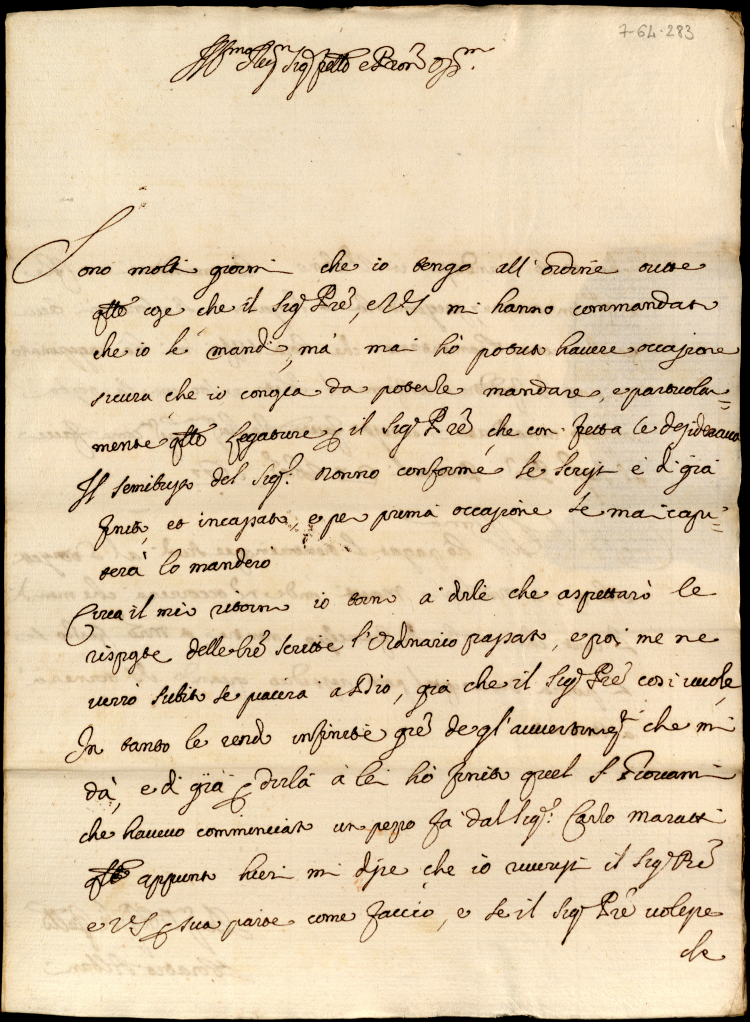 7-64-283
Ill.mo Sig.r Sig.r e Pron.e Oss.mo
Sono molti giorni che io tengo all'ordine tutte
q.tte cose che il Sig.r Pre, e VS mi hanno commandato
che io le mandi, mà mai hò potuto havere occasione
sicura che io conosca da poterle mandare, e particolar=
mente q.tte legature p il Sig.r Pre che con fretta le desiderava
Il semibusto del Sig.r Nonno conforme le scrissi è di già
finito, et incassato, e per prima occasione se mai capi=
terà lo manderò
Circa il mio ritorno io torno a dirle che aspettarò le
risposte delle lre scritte l'ordinario passato, e poi me ne
verrò subito se piacerà a Dio, già che il Sig.r Pre così vuole
In tanto le rendo infinite grē de gl'avvertim.ti che mi
dà, e di già p dirla à lei hò finito quel S. Giovanni
che havevo comminciato un pezzo fa dal Sig.r Carlo Maratti
q.tto appunto hieri mi disse che io riverissi il Sig.r Pre
e VS p sua parte come faccio, e se il Sig.r Pre volesse
che